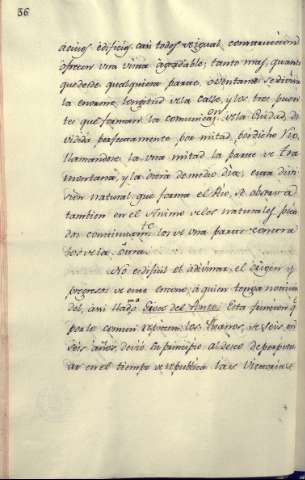 36
acivos edificios casi todos de igual, comunicacion
ofrecen una vista agradable; tanto mas, quanto
que desde qualquiera parte, o ventana se divisa
la enorme longitud de la calle, y los tres puen-
tes que forman la comunicac.on de la Ciudad, di-
vidida perfectamente por mitad, por dicho Rio,
llamandose la una mitad la parte de Tra-
montana, y la otra de medio dia; cuya divi-
sion natural, que forma el Rio, se observa
tambien en el de los naturales,
continuam.te los de una parte contra
los de la otra.
No es dificil el adivinar el origen y
progresos de este encono, a quien tenga noticia
del, asi llam.o Juego del Ponte: Esta funcion q.
por lo comun repiten los Pisanos, de seis en
seis años, devió su principio al deseo de perpetu-
ar en el tiempo de republica las Victorias